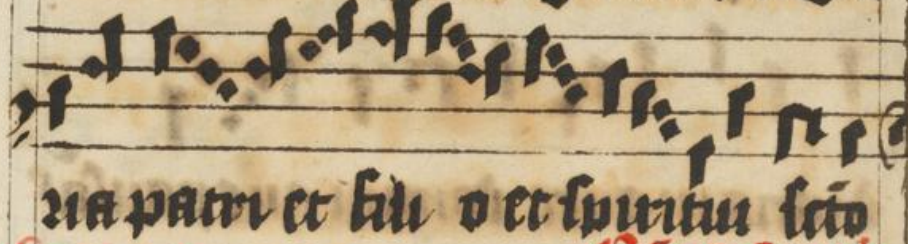 ria patri et fili o et spiritui scto